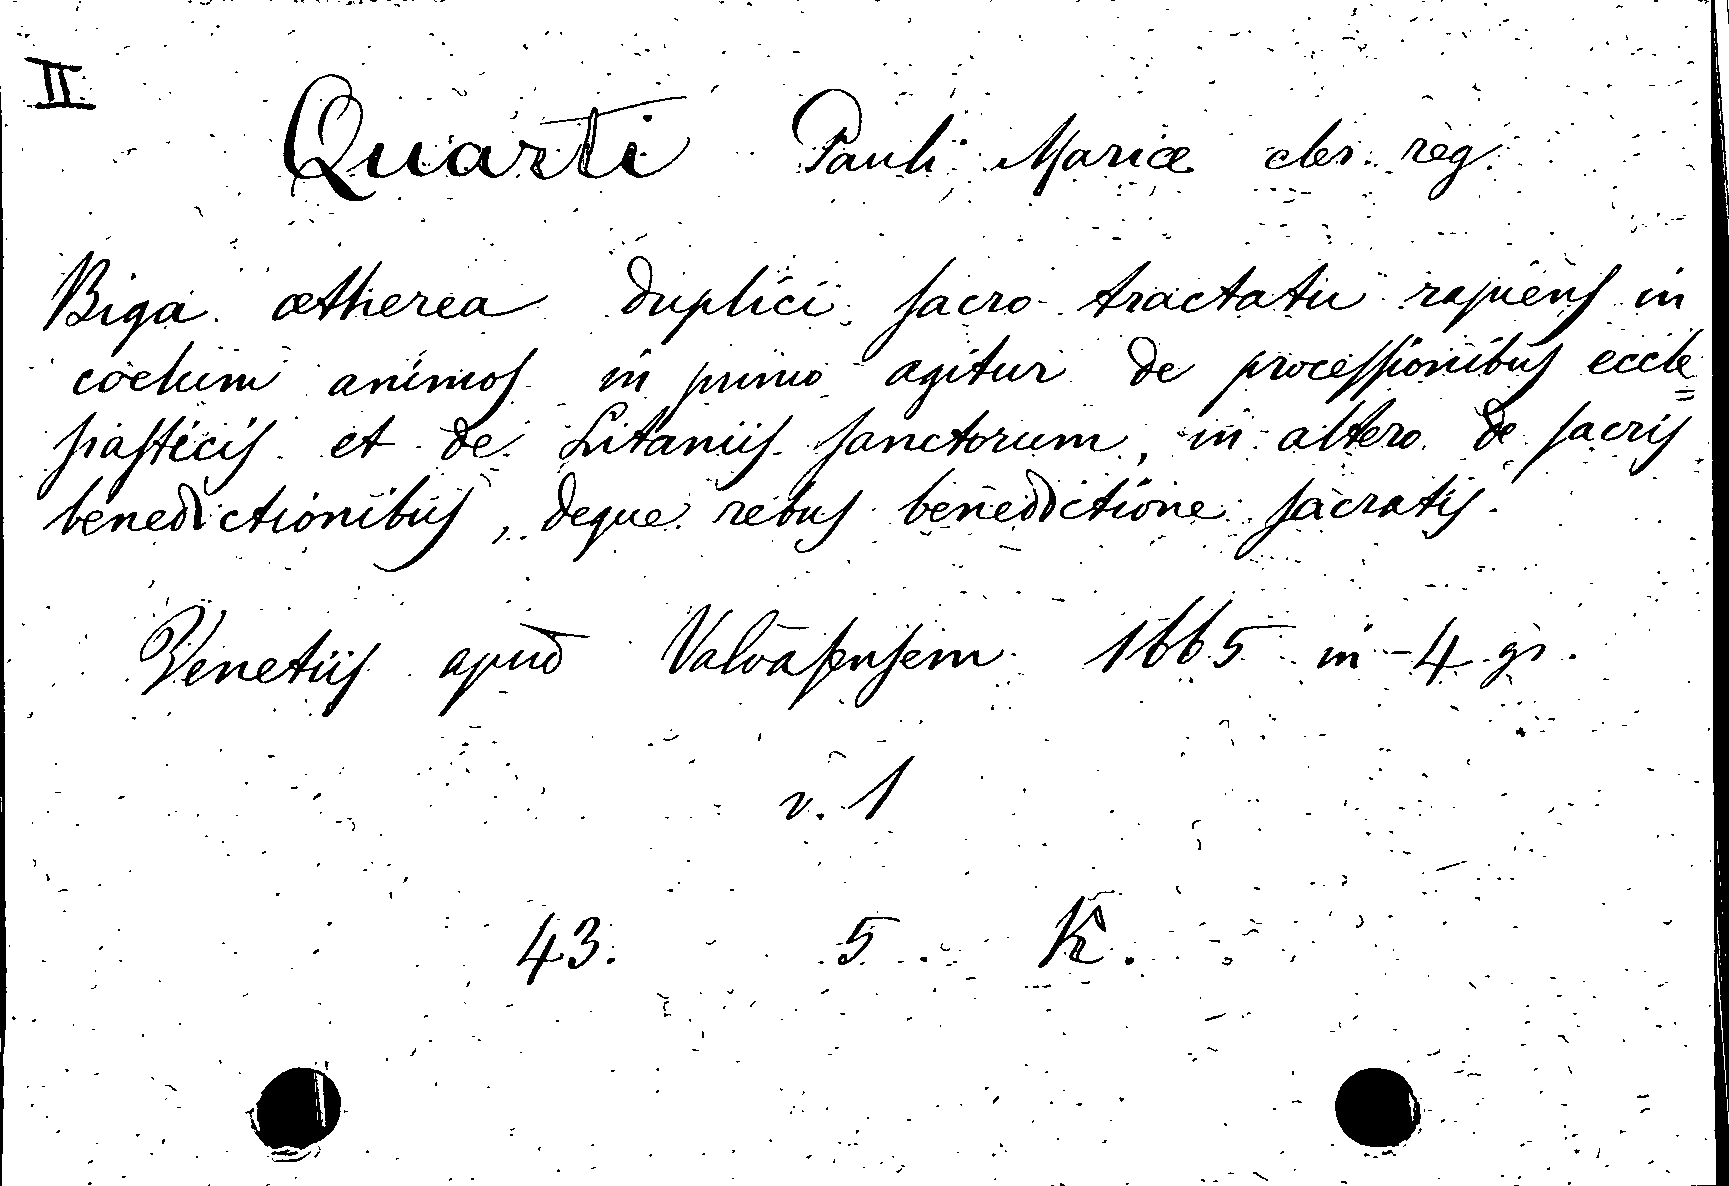 II
Quarti Pauli Mariæ cler. reg.
Biga ætherea duplici sacro tractatu rapiens in
coelum animos in primo agitur de processionibus eccle=
siasticis et de Litaniis sanctorum, in altero de sacris
benedictionibus, deque rebus benedictione sacratis.
Venetiis apud Valvasensem 1665 in-4 gr.
v. 1
43. 5 K.